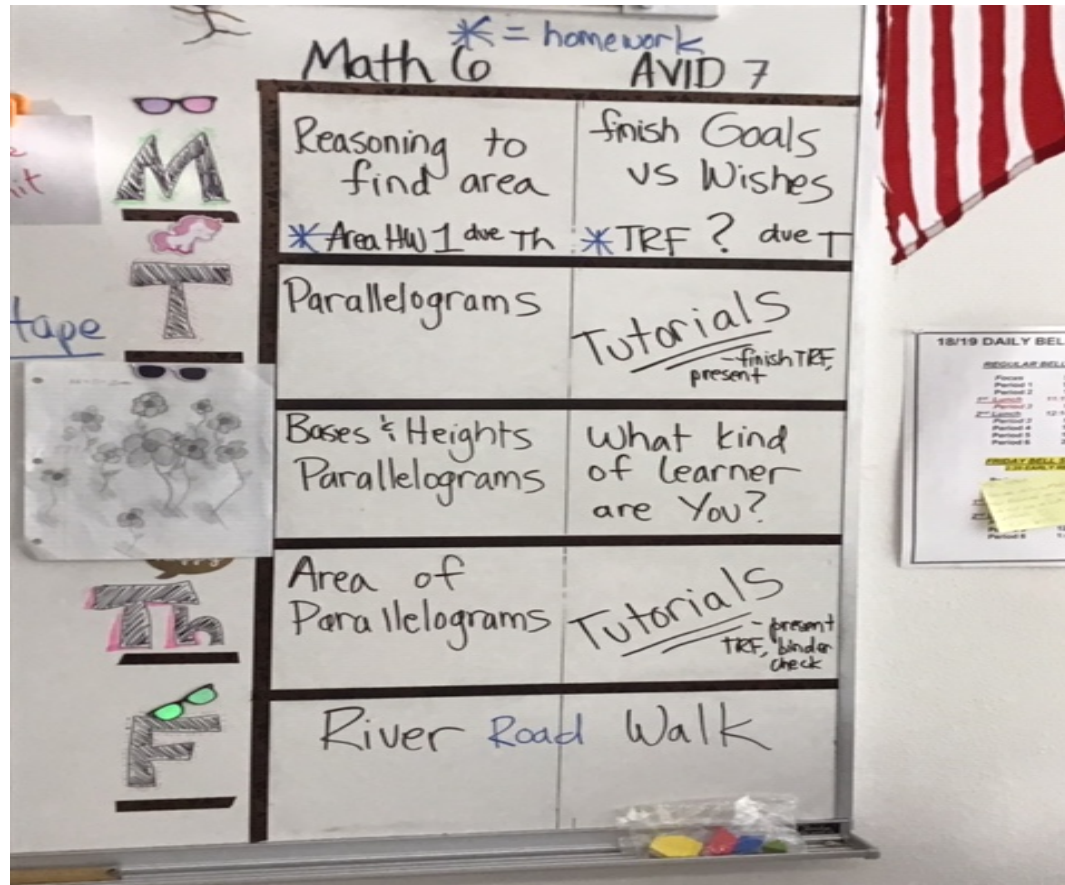 * = homework
Math 6 AVID 7
M
Reasoning to
find area
* Area HW 1 due Th
finish Goals
vs Wishes
* TRF ? due T
T
Parallelograms
Tutorials
- finish TRF,
present
tape
Bases & Heights
Parallelograms
What kind
of learner
are You?
Th
Area of
Parallelograms
Tutorials
- present
TRF, binder
check
F
River Road Walk
18/19 DAILY BEL
REGULAR BELL
Focus
Period 1
Period 2
1st Lunch
Period 3
2nd Lunch
Period 3
Period 4
Period 5
Period 6
FRIDAY BELL S
Period 6